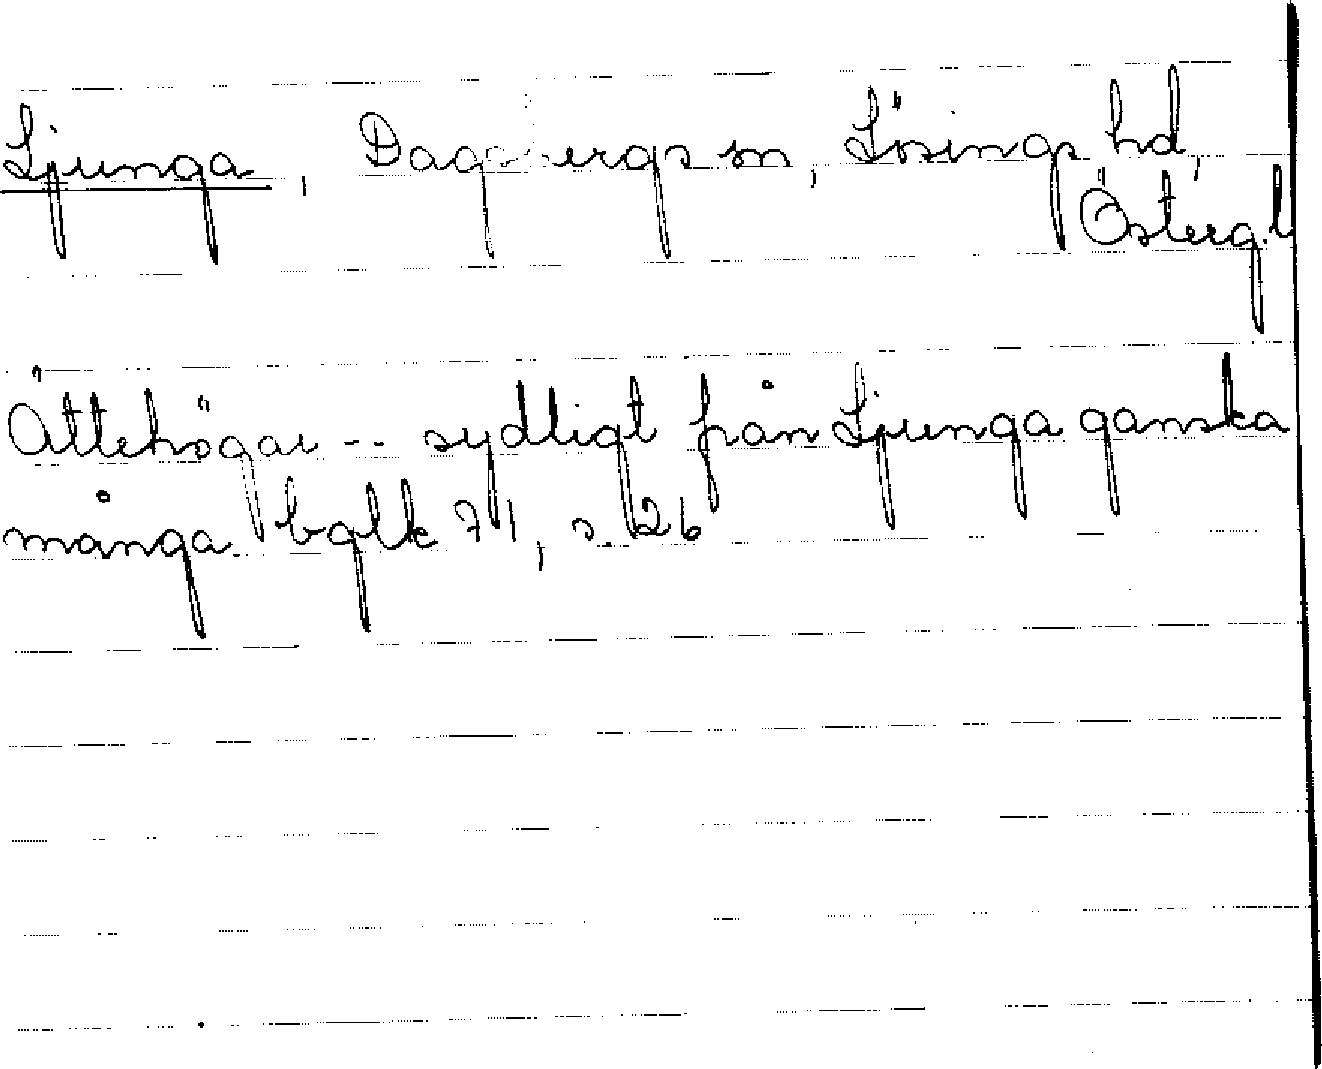 Ljunga, Dagsbergs sn, Lösings hd,
Österg.l
Ättehögar -- sydligt från Ljunga ganska
många. bglk 71, s. 26